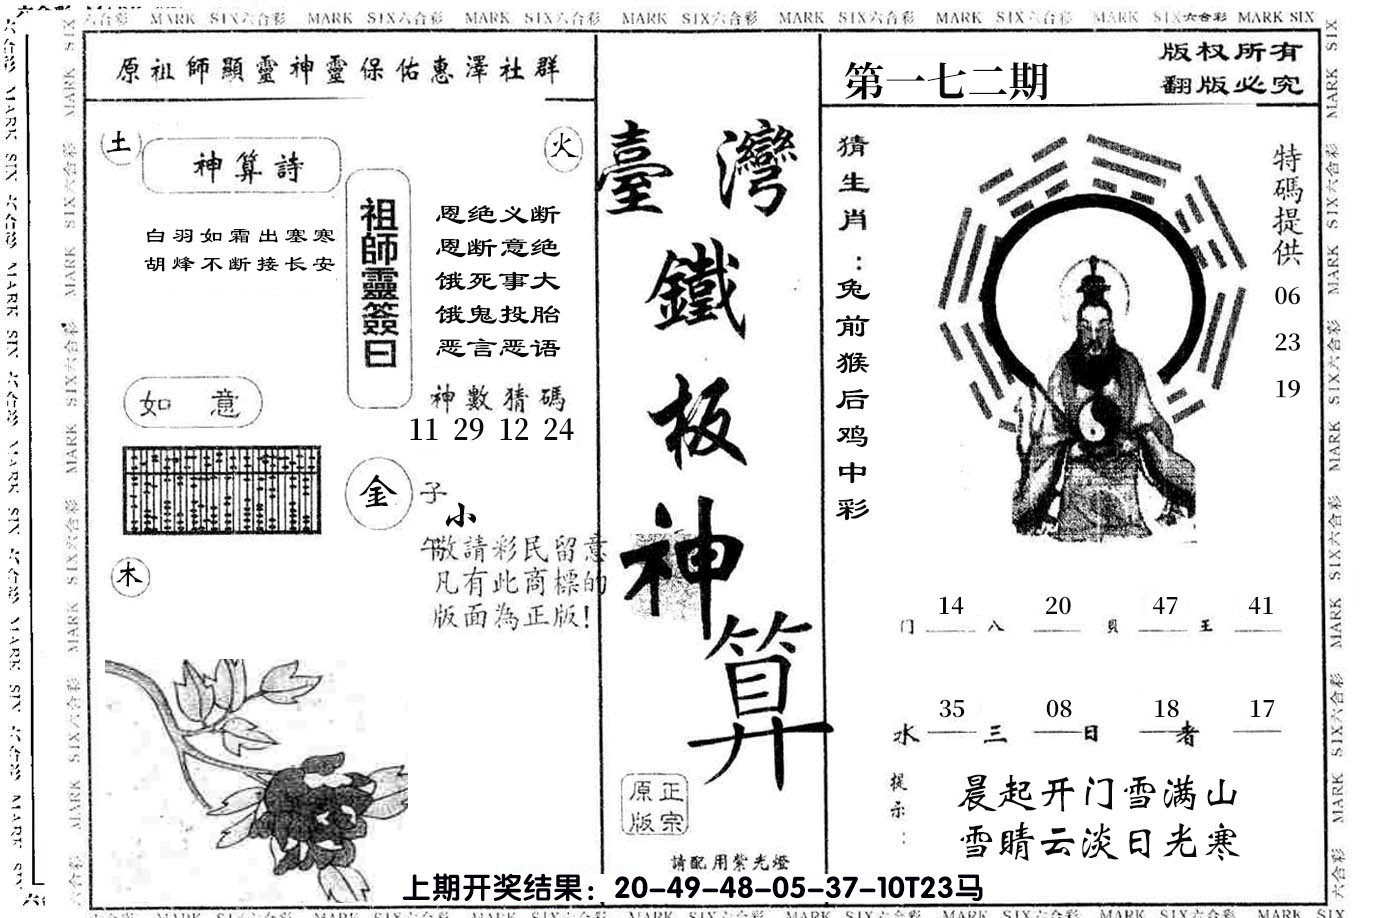 六合彩 MARK SIX六合彩 MARK SIX六合彩 MARK SIX六合彩 MARK SIX六合彩 MARK SIX六合彩 MARK SIX六合彩 MARK SIX六合彩 MARK SIX
原祖師顯靈神靈保佑惠澤社群
土
神算詩
火
白羽如霜出塞寒
胡烽不断接长安
祖師靈簽曰
恩绝义断
恩断意绝
饿死事大
饿鬼投胎
恶言恶语
如意
神數猜碼
11 29 12 24
金
子
小
午
敬請彩民留意
凡有此商標的
版面為正版!
木
臺灣
鐵
板
神
算
正宗
原版
請配用紫光燈
第一七二期
版权所有
翻版必究
猜生肖：兔前猴后鸡中彩
特碼提供
06
23
19
14 20 47 41
门 八 貝 王
35 08 18 17
水 三 日 者
提示：
晨起开门雪满山
雪晴云淡日光寒
上期开奖结果：20-49-48-05-37-10T23马